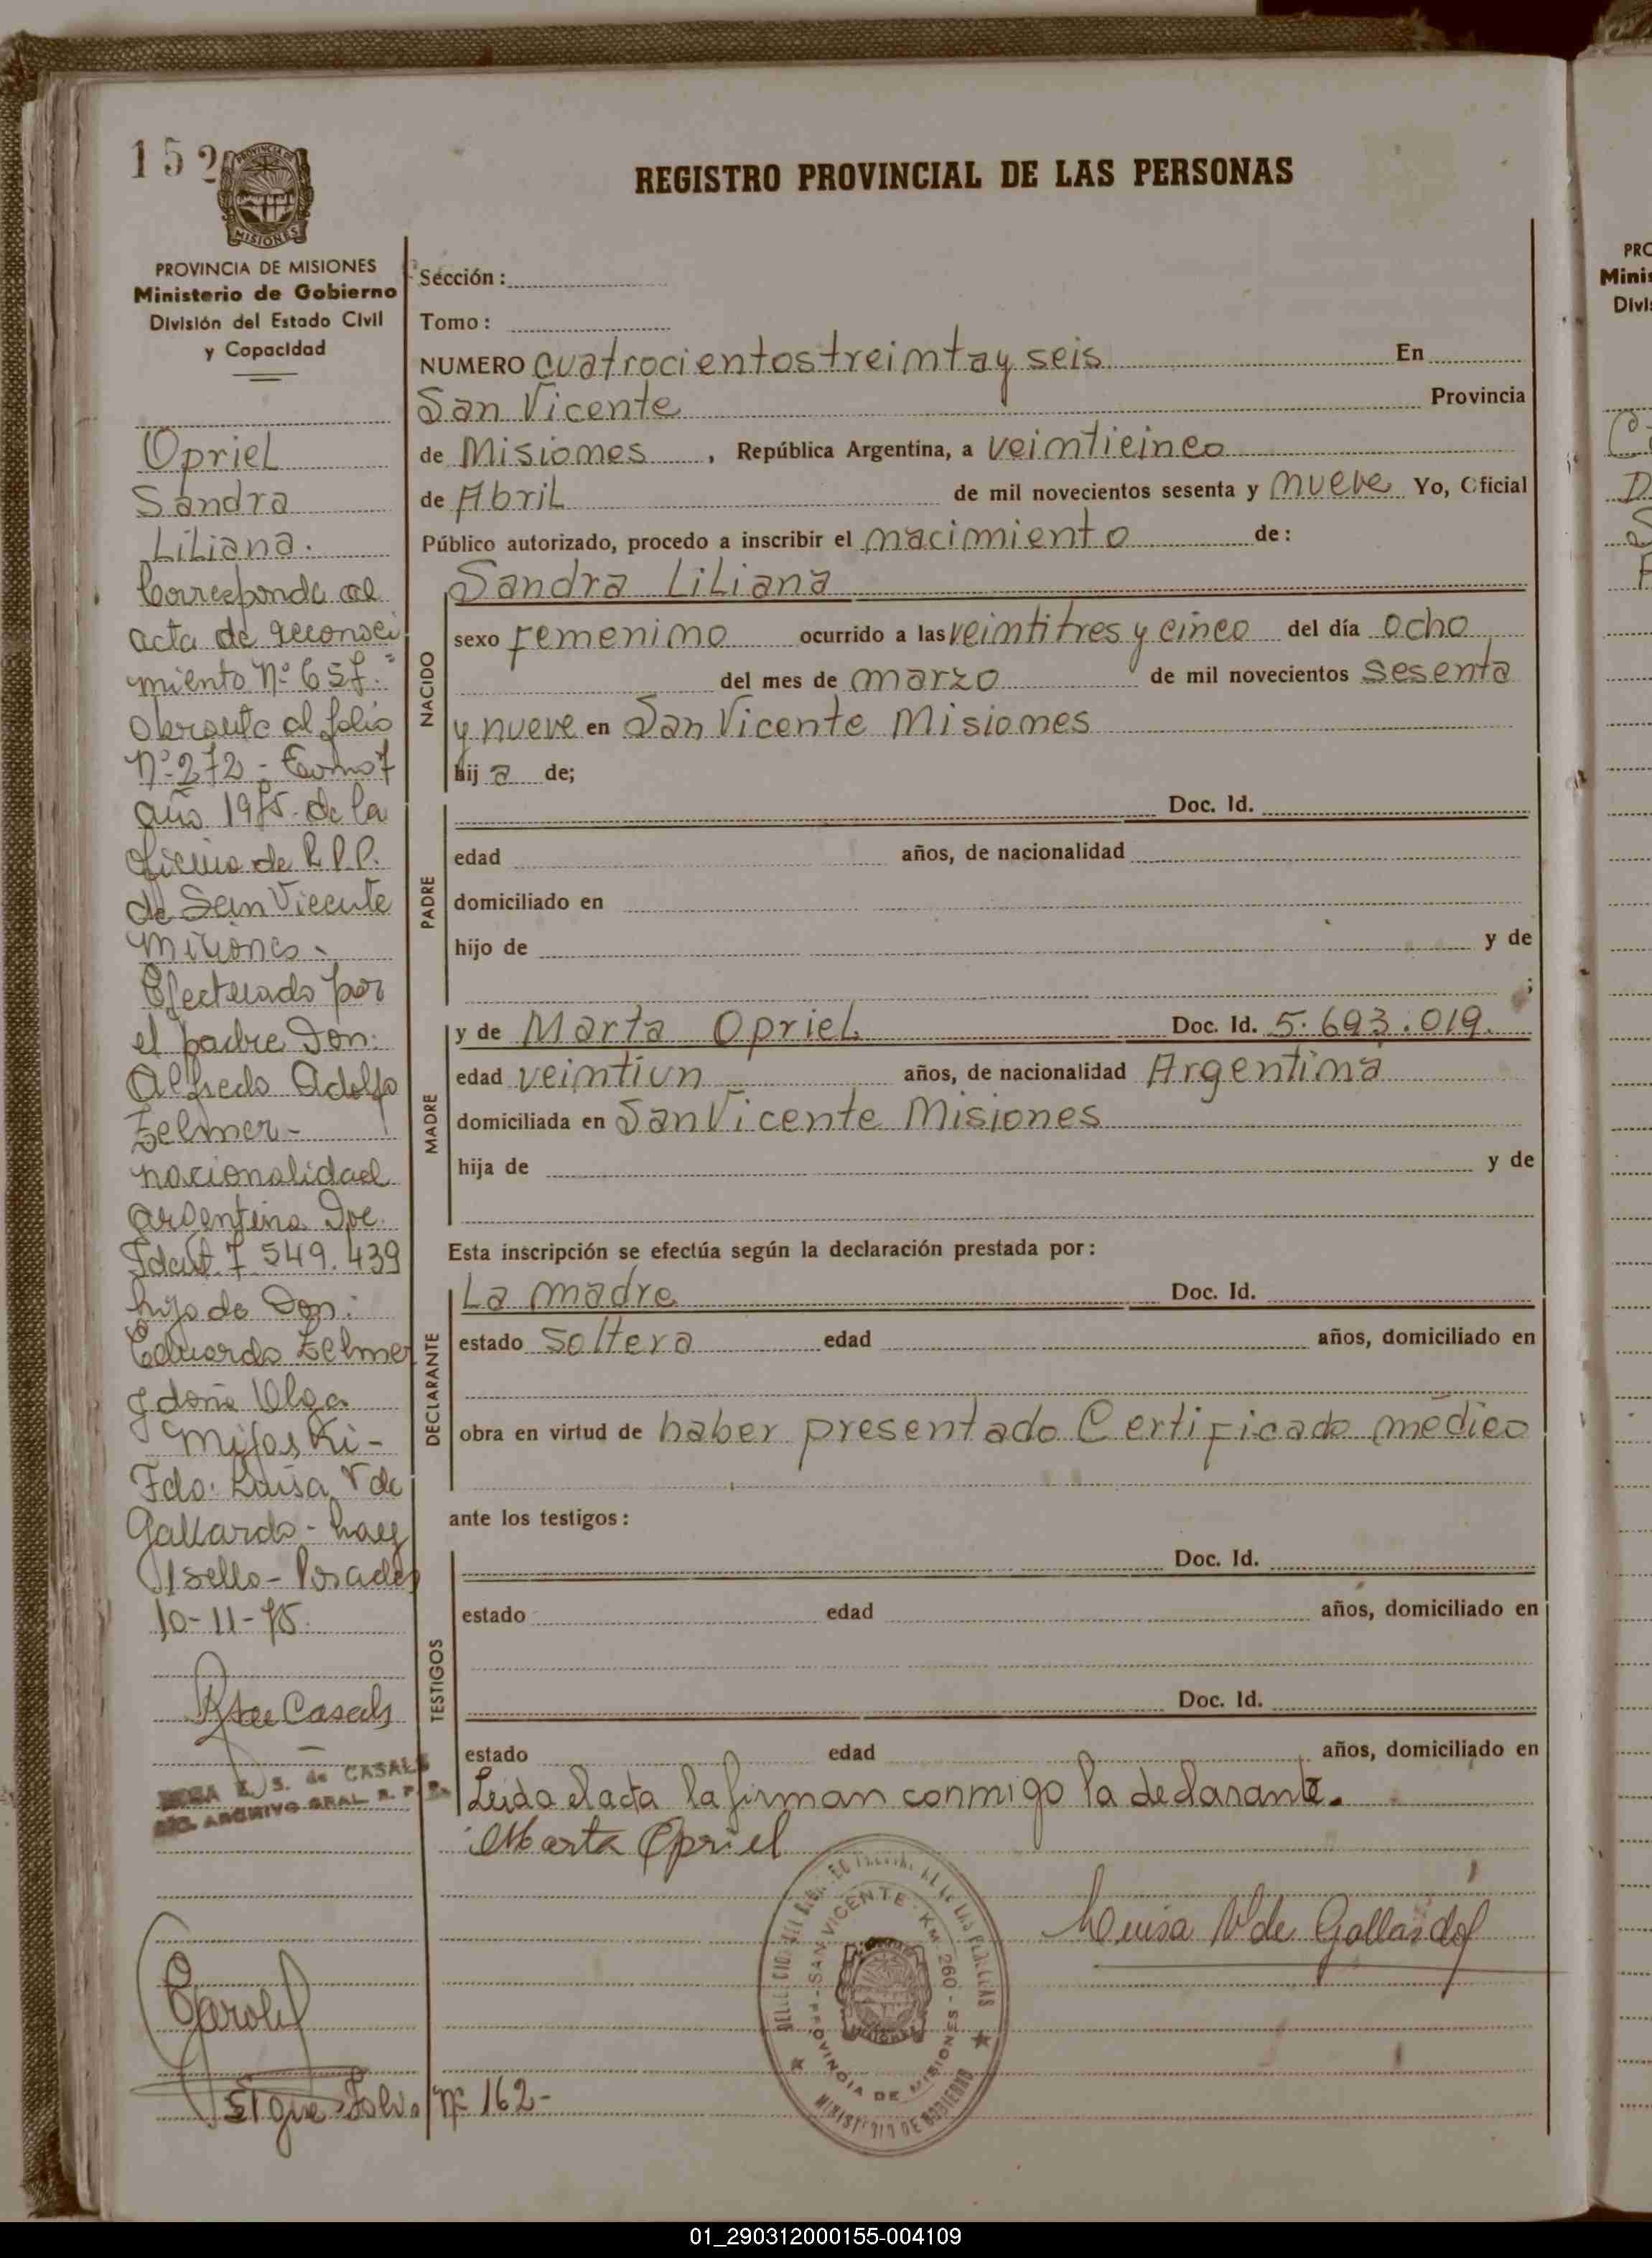 152
PROVINCIA DE
MISIONES
REGISTRO PROVINCIAL DE LAS PERSONAS
PROVINCIA DE MISIONES
Ministerio de Gobierno
División del Estado Civil
y Capacidad
Opriel
Sandra
Liliana.
Corresponde al
acta de reconoci
miento Nº 657.=
obrante al folio
Nº 272 - Tomo 1
año 1975. de la
oficina de R.P.P.
de San Vicente
Misiones.
Efectuado por
el padre Don:
Alfredo Adolfo
Zelmer-
nacionalidad
argentina Doc.
Ident. 7.549.439
hijo de Don:
Eduardo Zelmer
y doña Olga
Mifoski-
Fdo: Luisa V de
Gallardo - hay
1 sello - Posadas
10-11-75.
Rosa Casals
ROSA E. S. de CASALS
ARCHIVO GRAL. R. P. P.
Sección:
Tomo:
NUMERO cuatrocientos treimta y seis En
San Vicente Provincia
de Misiomes, República Argentina, a veimticinco
de Abril de mil novecientos sesenta y mueve Yo, Oficial
Público autorizado, procedo a inscribir el macimiento de:
NACIDO
Sandra Liliana
sexo Femenimo ocurrido a las veimtitres y cinco del día ocho
del mes de marzo de mil novecientos sesenta
y nueve en San Vicente Misiomes
hij a de;
PADRE
Doc. Id.
edad años, de nacionalidad
domiciliado en
hijo de y de
;
MADRE
y de Marta Opriel Doc. Id. 5.693.019.
edad veimtiun años, de nacionalidad Argentima
domiciliada en San Vicente Misiones
hija de y de
Esta inscripción se efectúa según la declaración prestada por:
DECLARANTE
La madre Doc. Id.
estado Soltera edad años, domiciliado en
obra en virtud de haber presentado Certificado médico
ante los testigos:
TESTIGOS
Doc. Id.
estado edad años, domiciliado en
Doc. Id.
estado edad años, domiciliado en
Leida el acta la firman conmigo la declarante.
Marta Opriel
Luisa V de Gallardo
SAN VICENTE - KM 260 - PROVINCIA DE MISIONES
MINISTERIO DE GOBIERNO
Sigue Folio Nº 162-
PRO
Minis
Divi
01_290312000155-004109